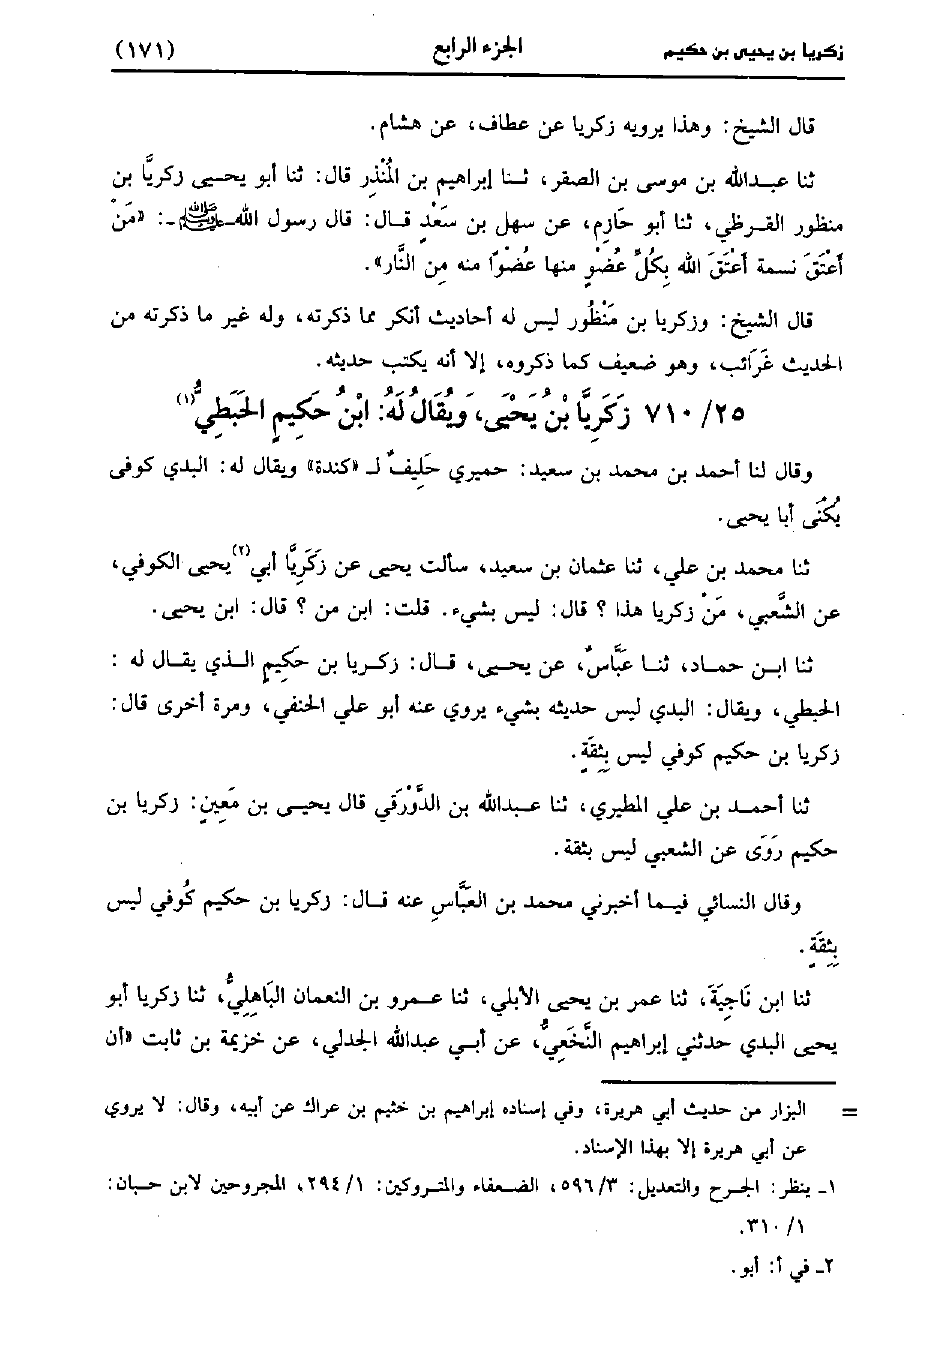 زكريا بن يحيى بن حكيم الجزء الرابع (١٧١)
قال الشيخ: وهذا يرويه زكريا عن عطاف، عن هشام.
ثنا عبدالله بن موسى بن الصقر، ثنا إبراهيم بن المُنْذِر قال: ثنا أبو يحيى زكريَّا بن
منظور القرظي، ثنا أبو حَازِم، عن سهل بن سَعْدٍ قال: قال رسول الله -ﷺ-: «مَنْ
أَعْتَقَ نسمة أَعْتَقَ الله بِكُلِّ عُضْوٍ منها عُضْوًا منه مِن النَّار».
قال الشيخ: وزكريا بن مَنْظُور ليس له أحاديث أنكر مما ذكرته، وله غير ما ذكرته من
الحديث غَرَائب، وهو ضعيف كما ذكروه، إلا أنه يكتب حديثه.
٢٥/ ٧١٠ زَكَرِيَّا بْنُ يَحْيَى، وَيُقَالُ لَهُ: ابْنُ حَكِيمٍ الحَبَطِيُّ(١)
وقال لنا أحمد بن محمد بن سعيد: حميري حَلِيفٌ لـ «كندة» ويقال له: البدي كوفى
يُكْنَى أبا يحيى.
ثنا محمد بن علي، ثنا عثمان بن سعيد، سألت يحيى عن زَكَرِيَّا أبي(٢) يحيى الكوفي،
عن الشَّعبي، مَنْ زكريا هذا ؟ قال: ليس بشيء. قلت: ابن من ؟ قال: ابن يحيى.
ثنا ابن حماد، ثنا عَبَّاسٌ، عن يحيى، قال: زكريا بن حَكِيمٍ الذي يقال له :
الحبطي، ويقال: البدي ليس حديثه بشيء يروي عنه أبو علي الحنفي، ومرة أخرى قال:
زكريا بن حكيم كوفي ليس بِثِقَةٍ.
ثنا أحمد بن علي المطيري، ثنا عبدالله بن الدَّوْرَقي قال يحيى بن مَعِينٍ: زكريا بن
حكيم رَوَى عن الشعبي ليس بثقة.
وقال النسائي فيما أخبرني محمد بن العَبَّاسِ عنه قال: زكريا بن حكيم كُوفي ليس
بِثِقَةٍ.
ثنا ابن نَاجِيَةَ، ثنا عمر بن يحيى الأبلي، ثنا عمرو بن النعمان البَاهِلِيُّ، ثنا زكريا أبو
يحيى البدي حدثني إبراهيم النَّخَعِيُّ، عن أبي عبدالله الجدلي، عن خزيمة بن ثابت «أن
= البزار من حديث أبي هريرة، وفي إسناده إبراهيم بن خثيم بن عراك عن أبيه، وقال: لا يروي
عن أبي هريرة إلا بهذا الإسناد.
١ـ ينظر: الجرح والتعديل: ٥٩٦/٣، الضعفاء والمتروكين: ٢٩٤/١، المجروحين لابن حبان:
٣١٠/١.
٢ـ في أ: أبو.